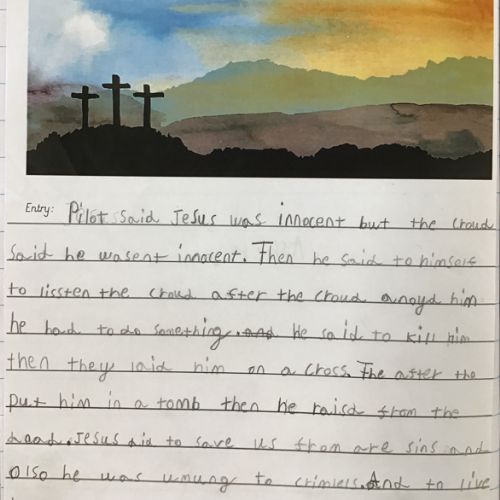 Entry: Pilot said Jesus was innocent but the croud
said he wasent innocent. Then he said to himself
to lissten the croud after the croud anoyd him
he had to do something. and he said to kill him
then they laid him on a cross. The after the
put him in a tomb then he raisd from the
daad. Jesus did to save us from are sins and
olso he was umung to crimiels. And to live